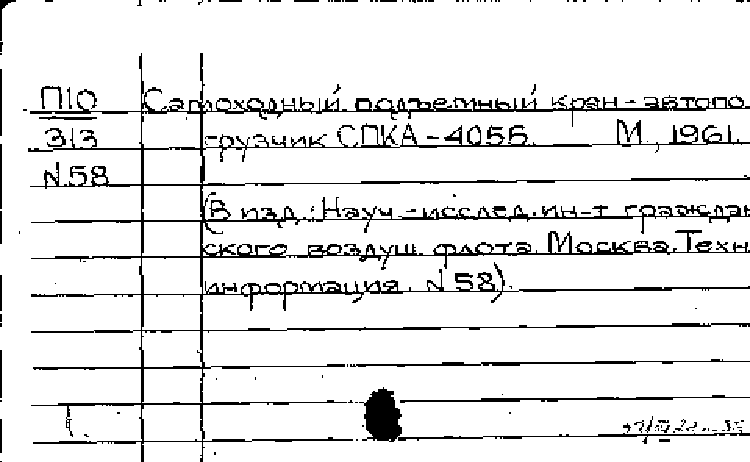 П10
313
N.58
Самоходный подъемный кран-автопо
грузчик СПКА-4055. М., 1961.
(В изд.: Науч.-исслед. ин-т граждан
ского воздуш. флота. Москва. Техн.
информация. N 58).